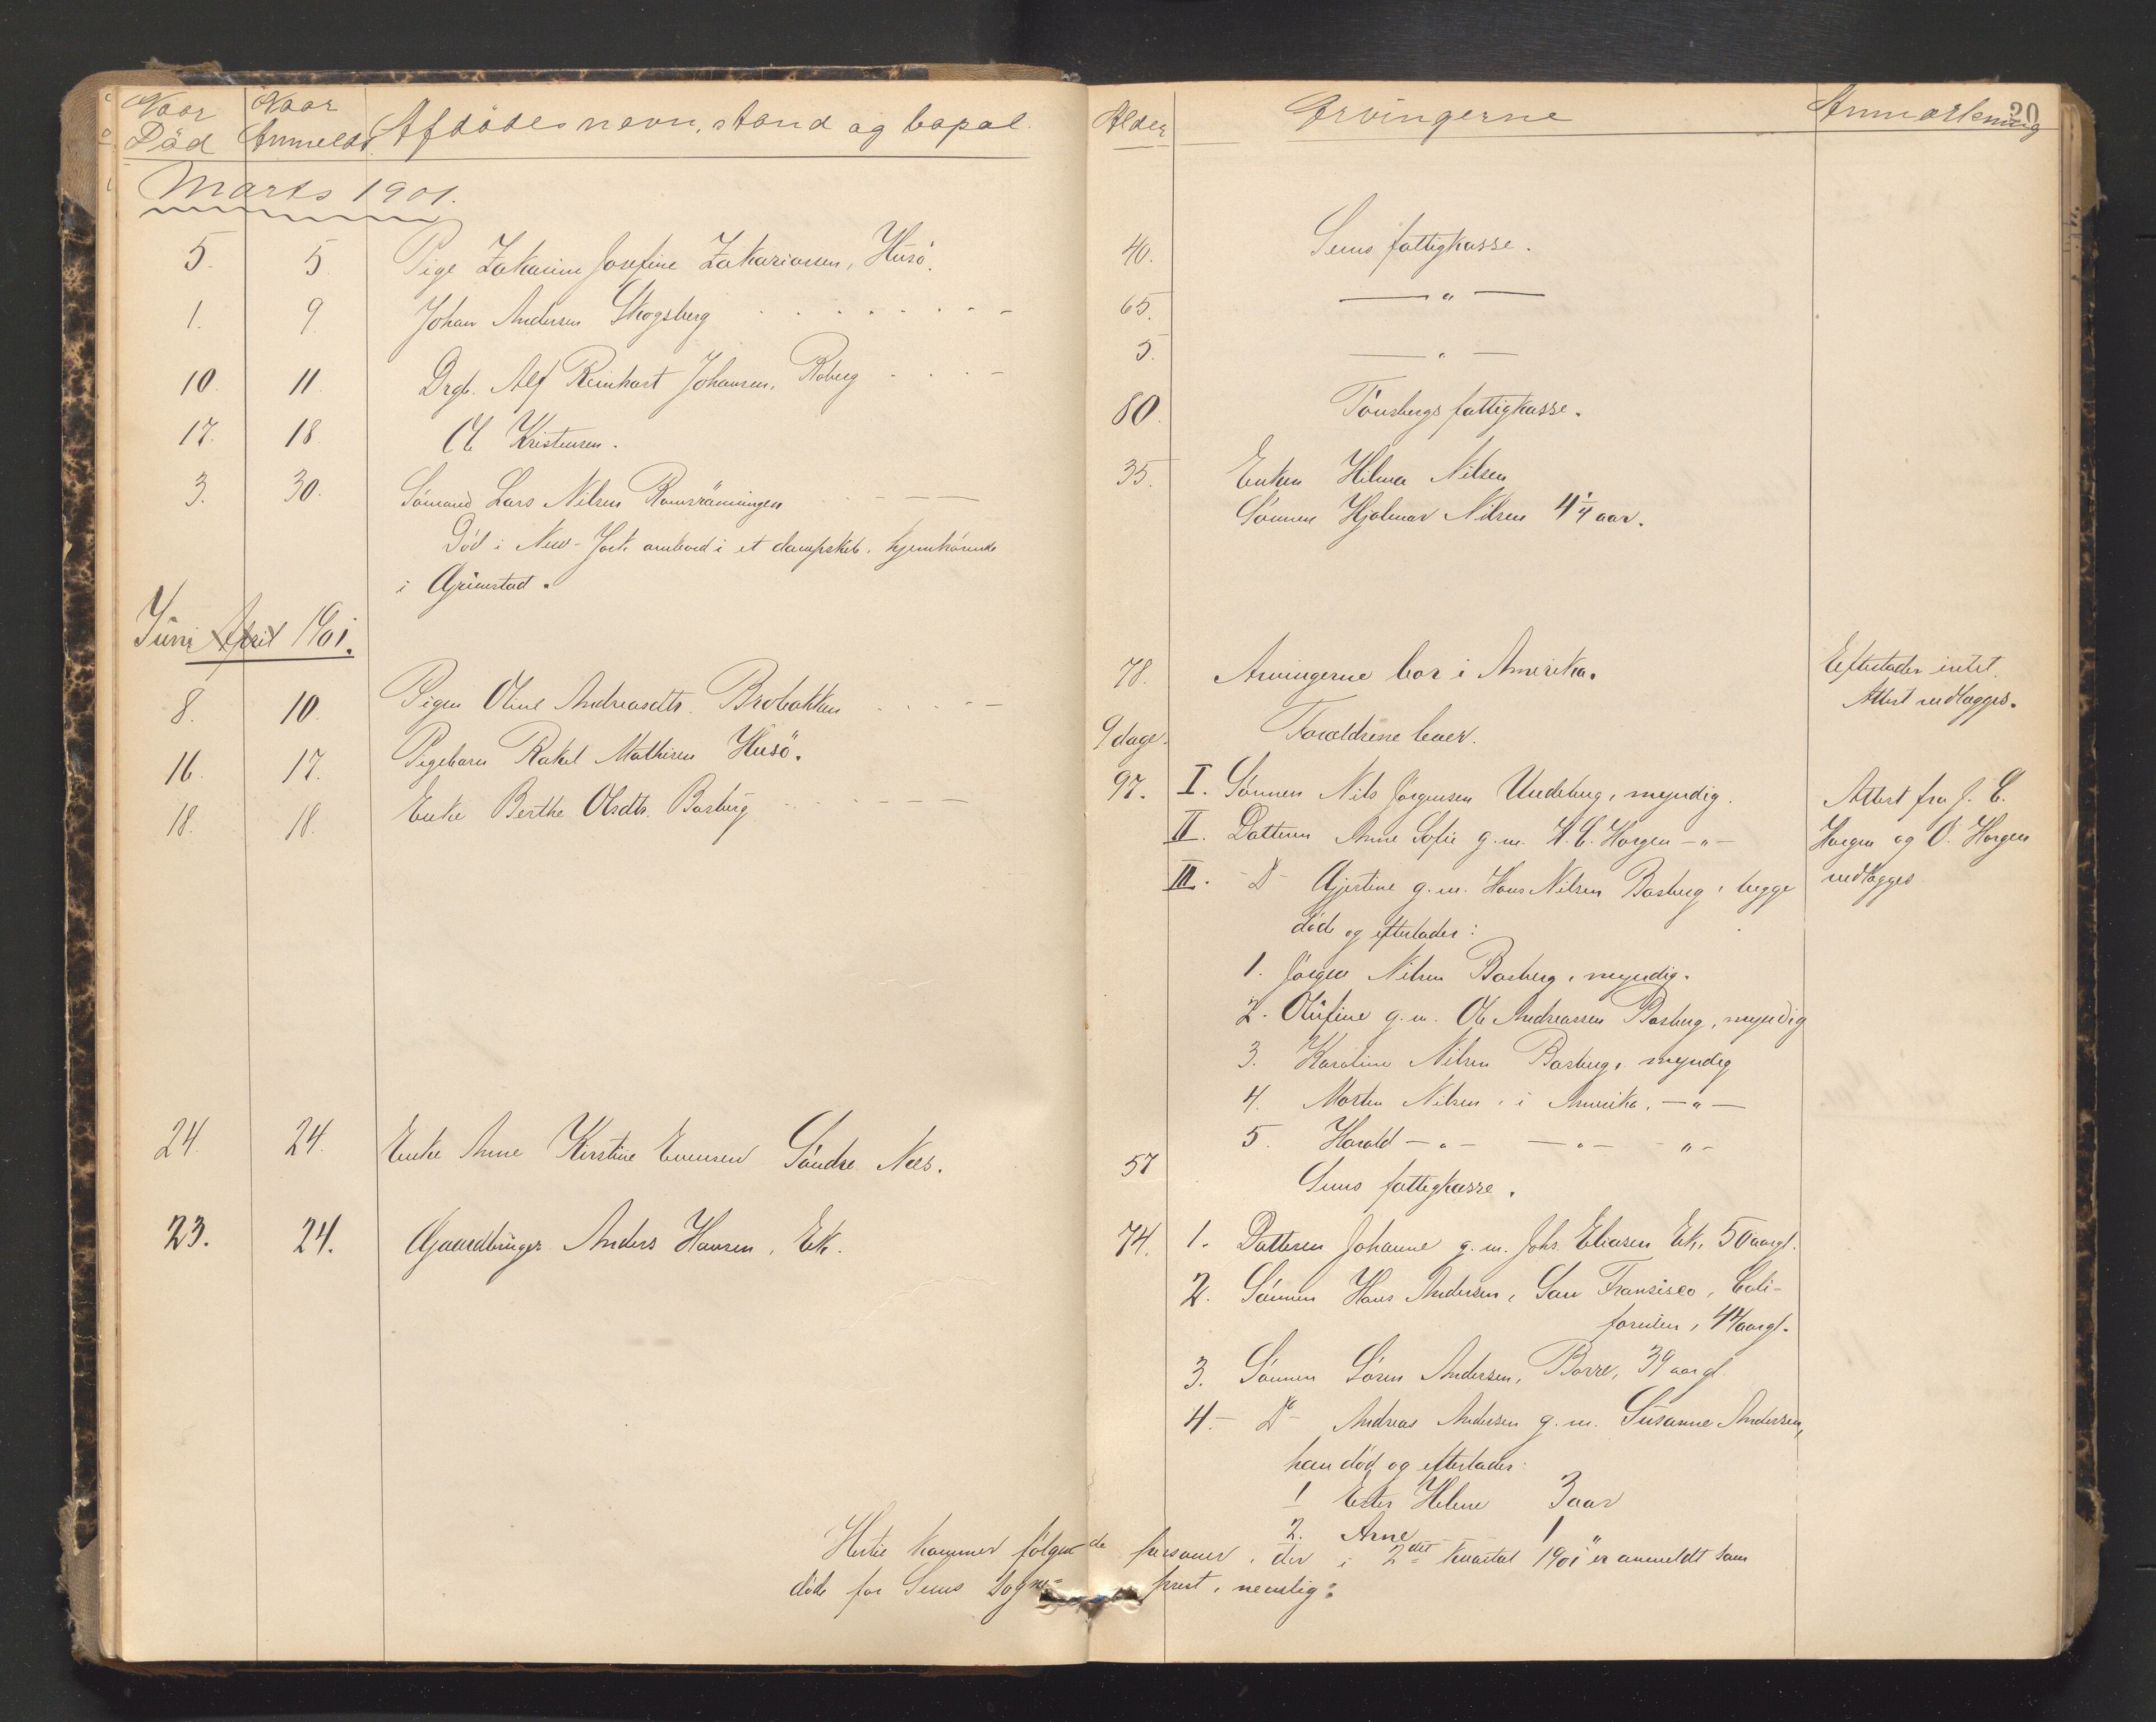 20
Naar Død
Naar Anmeldt
Afdødes navn, stand og bopæl.
Alder
Arvingerne
Anmærkning
Marts 1901.
5. 5. Pige Zakarine Josefine Zakariassen, Husö. 40. Sems fattigkasse.
1. 9. Johan Andersen Skogsberg 65. — " —
10. 11. Drgb. Alf Reinhart Johansen, Roberg 5. — " —
17. 18. Ole Kristensen. 80. Tönsbergs fattigkasse.
3. 30. Sömand Lars Nilsen Ramsräningen 35. Enken Hilma Nilsen
Sönnen Hjalmar Nilsen 4 1/4 aar.
Död i New-York ombord i et dampskib, hjemhörende
i Grimstad.
Juni April 1901.
8. 10. Pigen Oline Andreasdtr. Brobakken 78. Arvingerne bor i Amerika. Efterlader intet.
Attest vedlægges.
16. 17. Pigebarn Rakel Mathisen Husö. 9 dage. Forældrene lever.
18. 18. Enke Berthe Olsdtr. Basberg 97. I. Sönnen Nils Jörgensen Undeberg, myndig. Attest fra J. C.
II. Datteren Anne Sofie g. m. H. C. Horgen — " — Horgen og O. Horgen
III. - D - Gjestine g. m. Hans Nilsen Basberg, begge vedlægges
döde og efterlader:
1. Jörgen Nilsen Basberg, myndig.
2. Olufine g. m. Ole Andreassen Basberg, myndig
3. Karoline Nilsen Basberg, myndig
4. Morten Nilsen, i Amerika, — " —
5. Harald — " — — " — — " —
24. 24. Enke Anne Kirstine Evensen Söndre Næs. 57 Sems fattigkasse.
23. 24. Gaardbruger Anders Hansen, Ek. 74. 1. Datteren Johanne g. m. Johs. Eliasen Ek, 50 aargl.
2. Sönnen Hans Andersen, San Fransisco, Cali-
fornien, 44 aargl.
3. Sönnen Sören Andersen, Borre, 39 aargl.
4. - Do - Andreas Andersen g. m. Susanne Andersen,
han död og efterlader:
1 Ester Helene 3 aar
2. Arne — — 1 "
Hertil kommer fölgende personer, der i 2det kvartal 1901 er anmeldt som
döde for Sems Sogne= prest, nemlig: